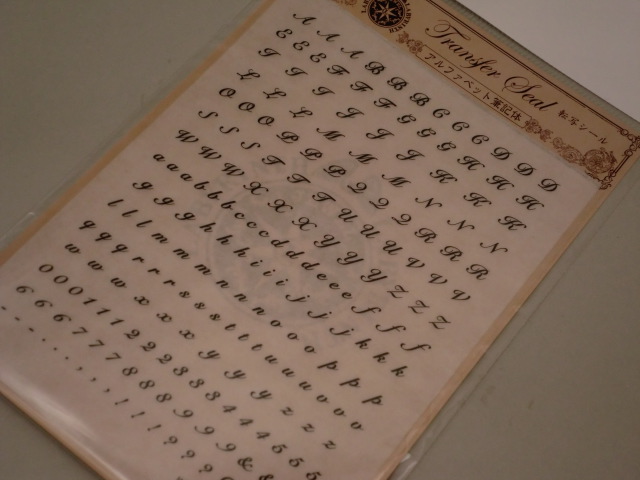 Transfer Seal 転写シール
アルファベット筆記体
A A A B B B C C C D D D
E E E F F F G G G H H H
I I I J J J K K K
L L L M M M N N N
O O O P P P Q Q Q R R R
S S S T T T U U U V V V
W W W X X X Y Y Y Z Z Z
a a a b b b c c c d d d e e e f f f
g g g h h h i i i j j j k k k
l l l m m m n n n o o o p p p
q q q r r r s s s t t t u u u v v v
w w w x x x y y y z z z
0 0 0 1 1 1 2 2 2 3 3 3 4 4 4 5 5 5
6 6 6 7 7 7 8 8 8 9 9 9 & &
. . . , , , ! ! ! ? ? ?